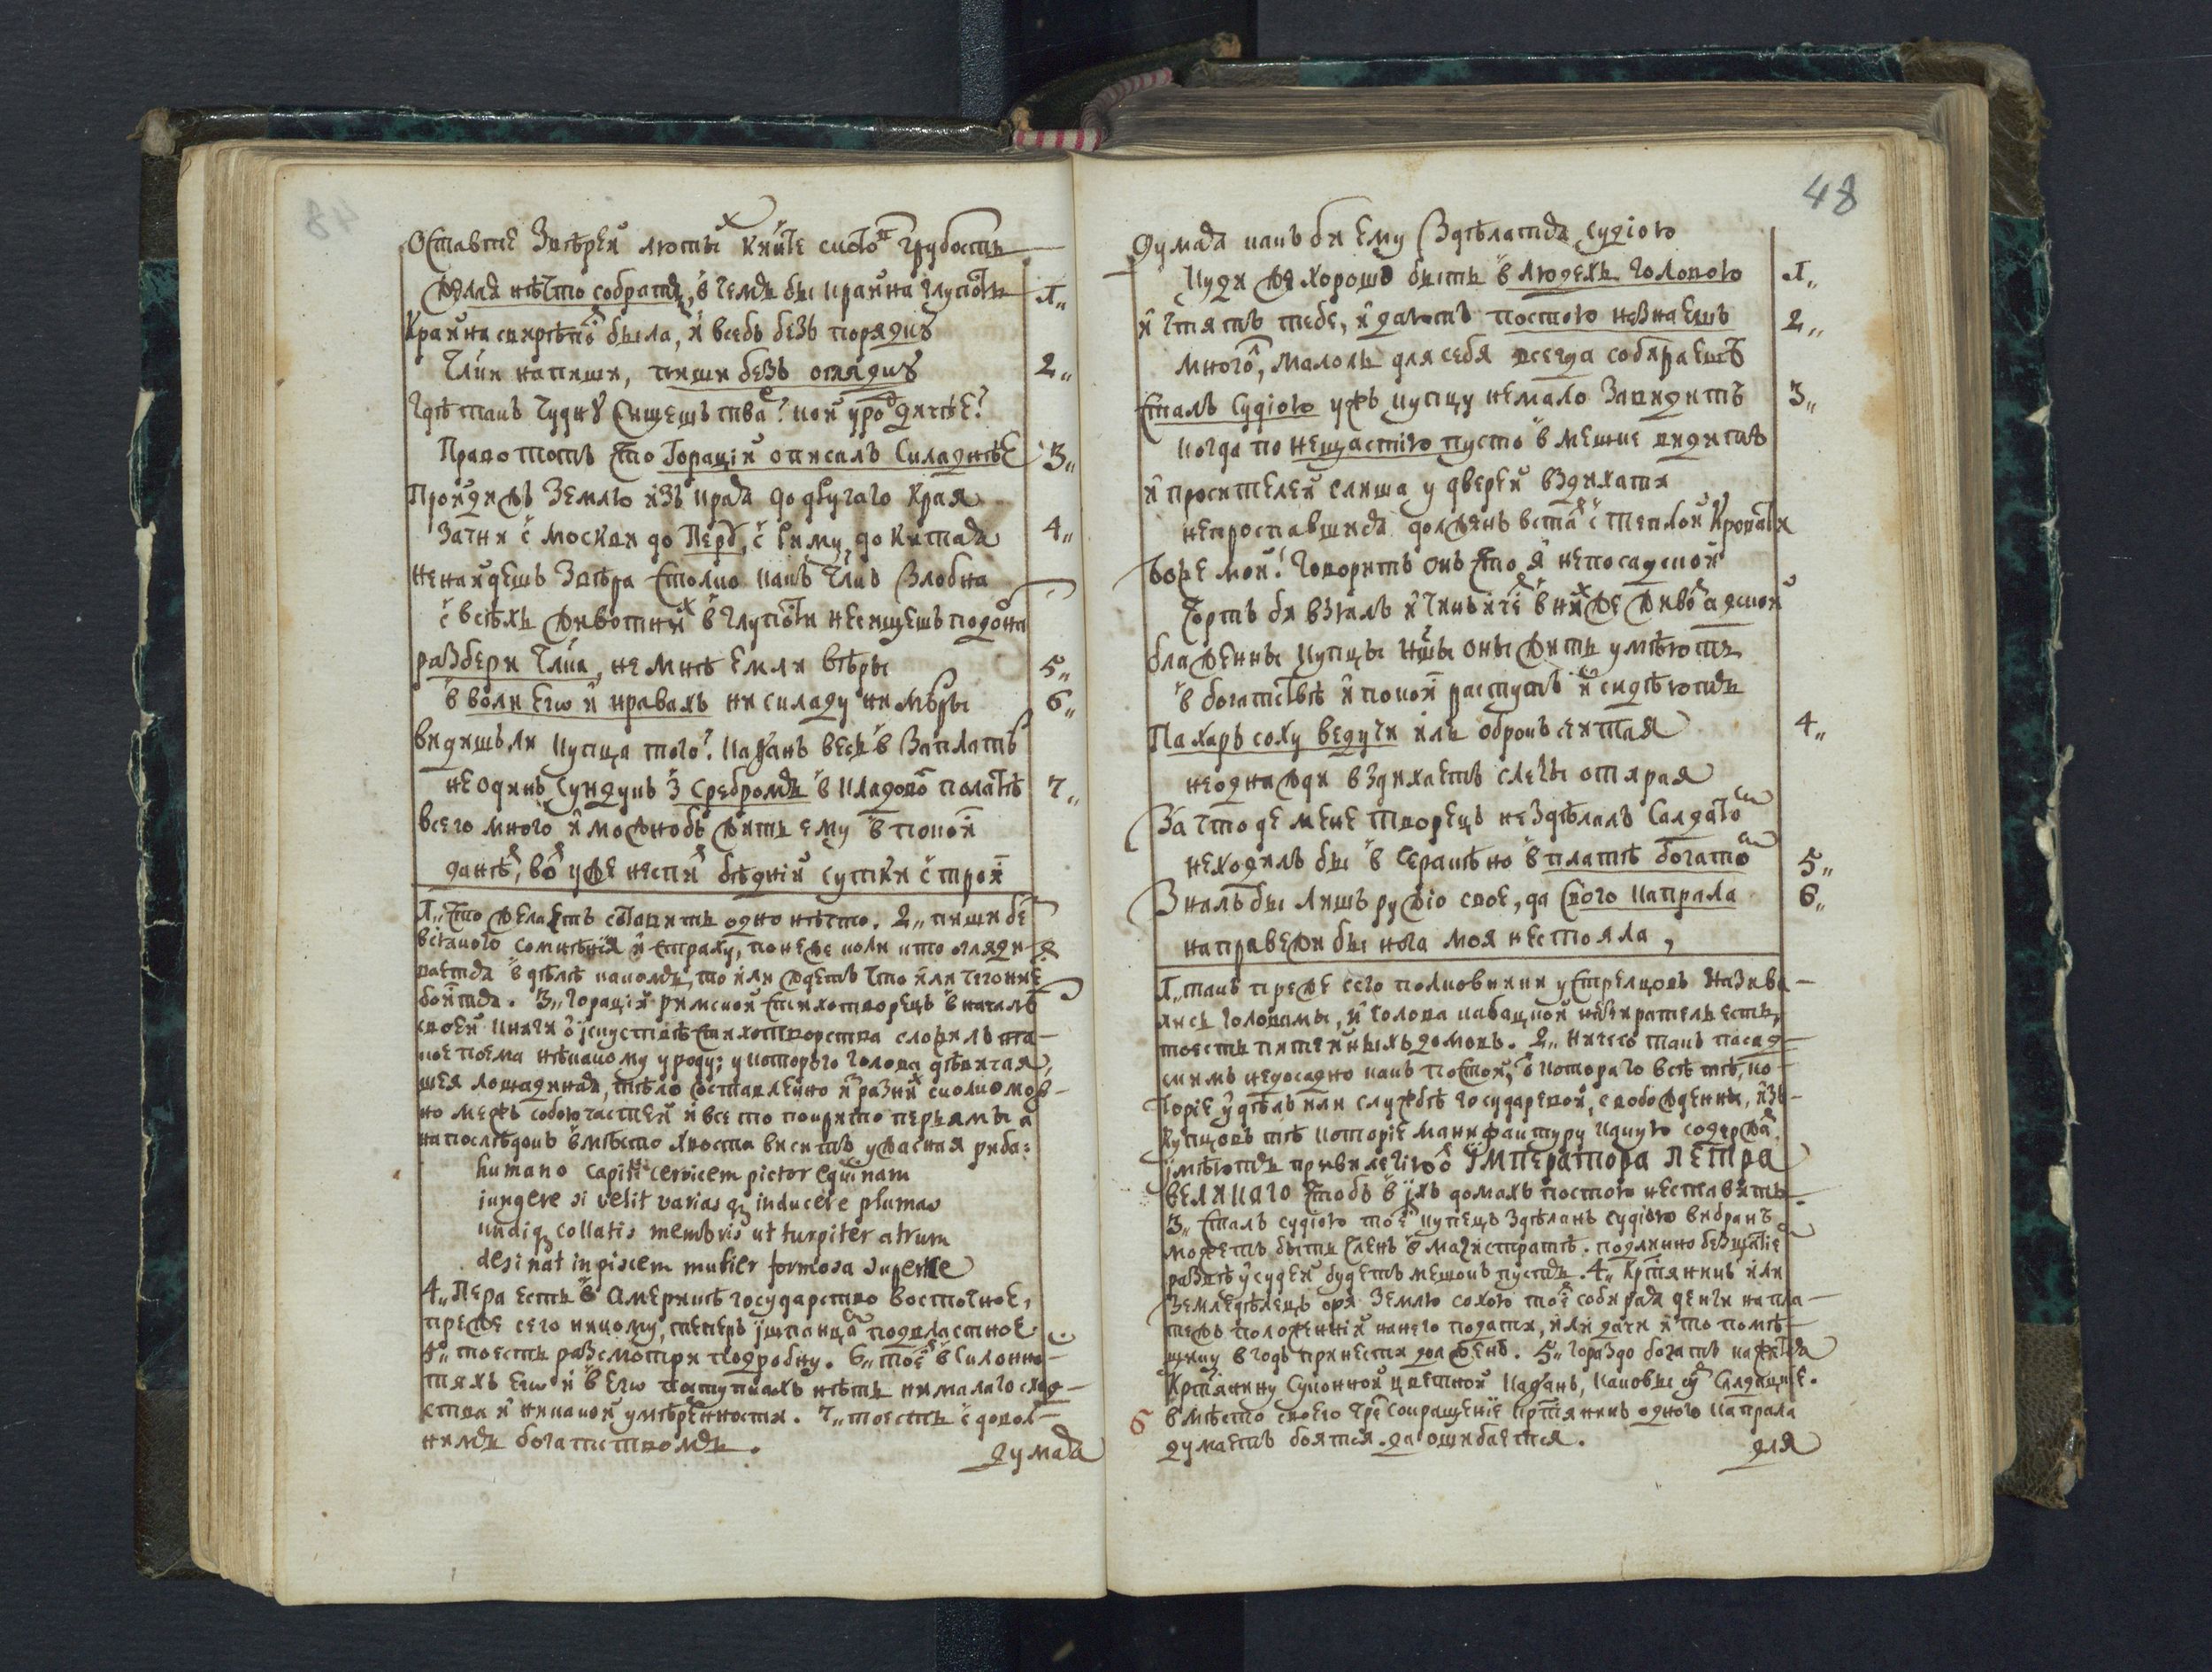 Оставте звѣрей люты х киньте скотску грубость
желая нѣчто собрать, в чемъ бы крайна глупость 1„
Крайна свирѣпо была, и всебъ безъ порядку
Члвк напиши, пиши безъ оглядку 2„
Гдѣ такъ чудну сыщешь тва ? кой уро дичнѣе?
Право тотъ что Горацій описалъ складнѣе 3„
Пройди жъ землю изъ края до другаго края
Зачни с москви до Перу, с риму, до Китая 4„
не найдешь звѣра столко какъ члвкъ злобна
с всѣхъ животних в глупости не сищешъ подобна
разбери члвка, не мнѣ емли вѣры 5„
в воли егѡ и нравахъ ни складу ни мѣры 6„
видишъ ли купца того? кафтанъ весь в заплатѣ
не одинъ сундукъ з сребромъ в кладово полатѣ 7„
всего много и можнобъ жить ему в покои
да нѣт, во уже неспи бѣдній сутки с трои
1„ Что желаетъ ставить одно нѣчто. 2„ пиши бе
всякого сомнѣнія и страху, понеже коли кто огляди
вается в дѣлѣ какомъ, то или ждетъ что или чего ни е
боится. 3„ горацій римской стихотворецъ в началѣ
своей книги о искуствѣ стихотворства сложилъ та-
кое поема нѣкакому уроду; у которого голова дѣвичая,
шея лошадиная, тѣло составлено из разних сколко мож-
но межъ собою частей и все то покрито перьями а
на послѣдокъ вмѣсто хвоста виситъ ужасная риба:
humano capiti cervicem pictor equinam
jungere si velit varias q inducere plumas
undiq collatis membris ut turpiter atrum
desinat in piscem mulier formosa superne
4„ Пера есть в Америкѣ государство восточное,
преже сего никому, теперъ ишпанца подвластное
5„ тоесть разсмотри подробну. 6„ тое в склонно-
тяхъ егѡ и в егѡ поступкахъ нѣтъ ни малаго сход-
ства и никакой умѣренности. 7„ тоесть с довол-
нимъ богатствомъ.
думая
48
думая какъ би ему здѣлатся судіою
куди же хорошо быть в людехъ головою 1„
и чтятъ тебе, и даютъ постою незнаешъ 2„
много, малолъ для себя всегда собираешъ
Сталъ судіою ужъ купцу немало завидитъ 3„
когда по нещастію пусто в мешке видитъ
и просителей слиша у дверей вздихати
непроспавшися долженъ встат с теплой кровати
Боже мой! говоритъ онъ что я непосадской
чортъ би взялъ и чинъ и че в них же живо адской
блаженны купцы ншы оны жить умѣютъ
в богатствѣ и покои растутъ и сидѣютъ
Пахаръ соху ведучи илъ оброкъ считая 4„
неоднажди вздихаетъ слезы отирая
За что де мене творецъ не здѣлалъ салдато
неходилъ бы в серапѣ но в платѣ богато 5„
Зналъ бы лишъ ружіо свое, да свого капрала 6„
на правежи бы нога моя нестояла,
1„ такъ преже сего полковники у стрелцовъ називa-
лись головамы, и голова кабацкой назирателъ есть,
тоесть питейныхъ домовъ. 2„ ничего такъ посад-
скимъ недосадно какъ постой, о котораго всѣ тѣ, ко-
торіе у дѣлъ или службѣ государевой, свобожденны, изъ
купцовъ тѣ которіе манифактуру какую содержа
имѣютъ привилегію о ІМПЕРАТОРА ПЕТРА
ВЕЛИКАГО чтобъ в ихъ домахъ постою неставить.
3„ Сталъ судіою тое купецъ здѣланъ судіою вибранъ
можетъ быть членъ в магистратѣ. подлинно безщастіе
развѣ у судей будетъ мешокъ пустъ. 4„ крстянинъ или
земледѣлецъ оря землю сохою тое собирая денги на пла-
тежъ положенній нанего подати, или дачи и то помѣ-
щику в годъ принести долженъ. 5„ гораздо богатъ кажется
крстянину суконной цветной кафтанъ, каковы су салдацкіе.
6 вмѣсто своего чре сокращеніе крстянинъ одного капрала
думаетъ боятся. да ошибается.
для